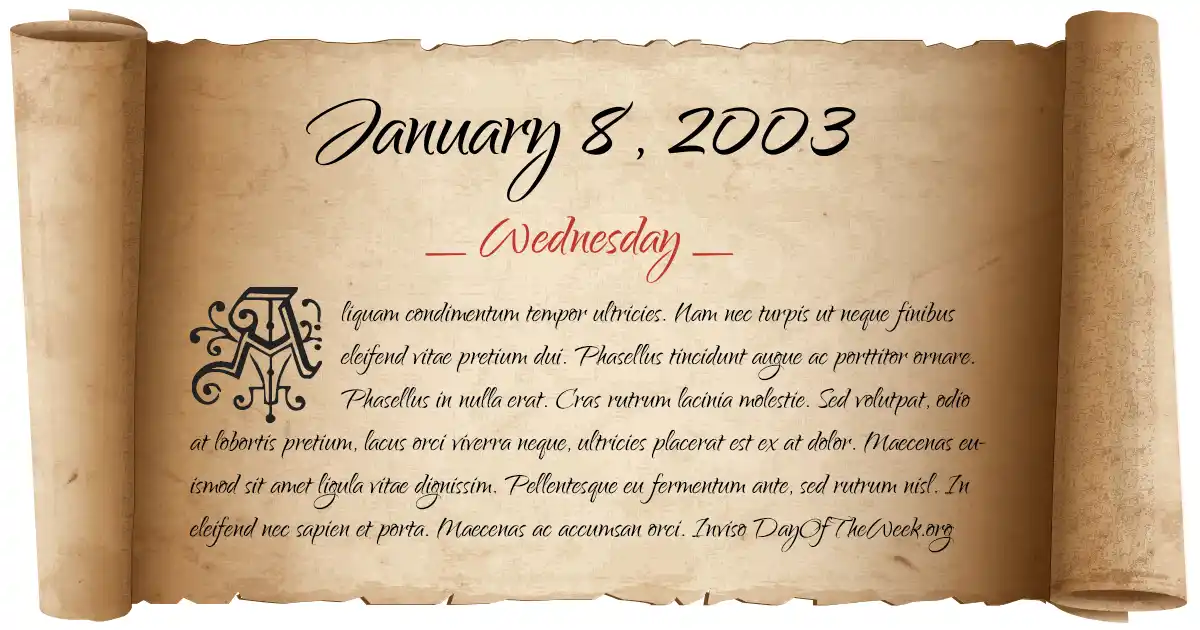 January 8, 2003
— Wednesday —
Aliquam condimentum tempor ultricies. Nam nec turpis ut neque finibus
eleifend vitae pretium dui. Phasellus tincidunt augue ac porttitor ornare.
Phasellus in nulla erat. Cras rutrum lacinia molestie. Sed volutpat, odio
at lobortis pretium, lacus orci viverra neque, ultricies placerat est ex at dolor. Maecenas eu-
ismod sit amet ligula vitae dignissim. Pellentesque eu fermentum ante, sed rutrum nisl. In
eleifend nec sapien et porta. Maecenas ac accumsan orci. Inviso DayOfTheWeek.org